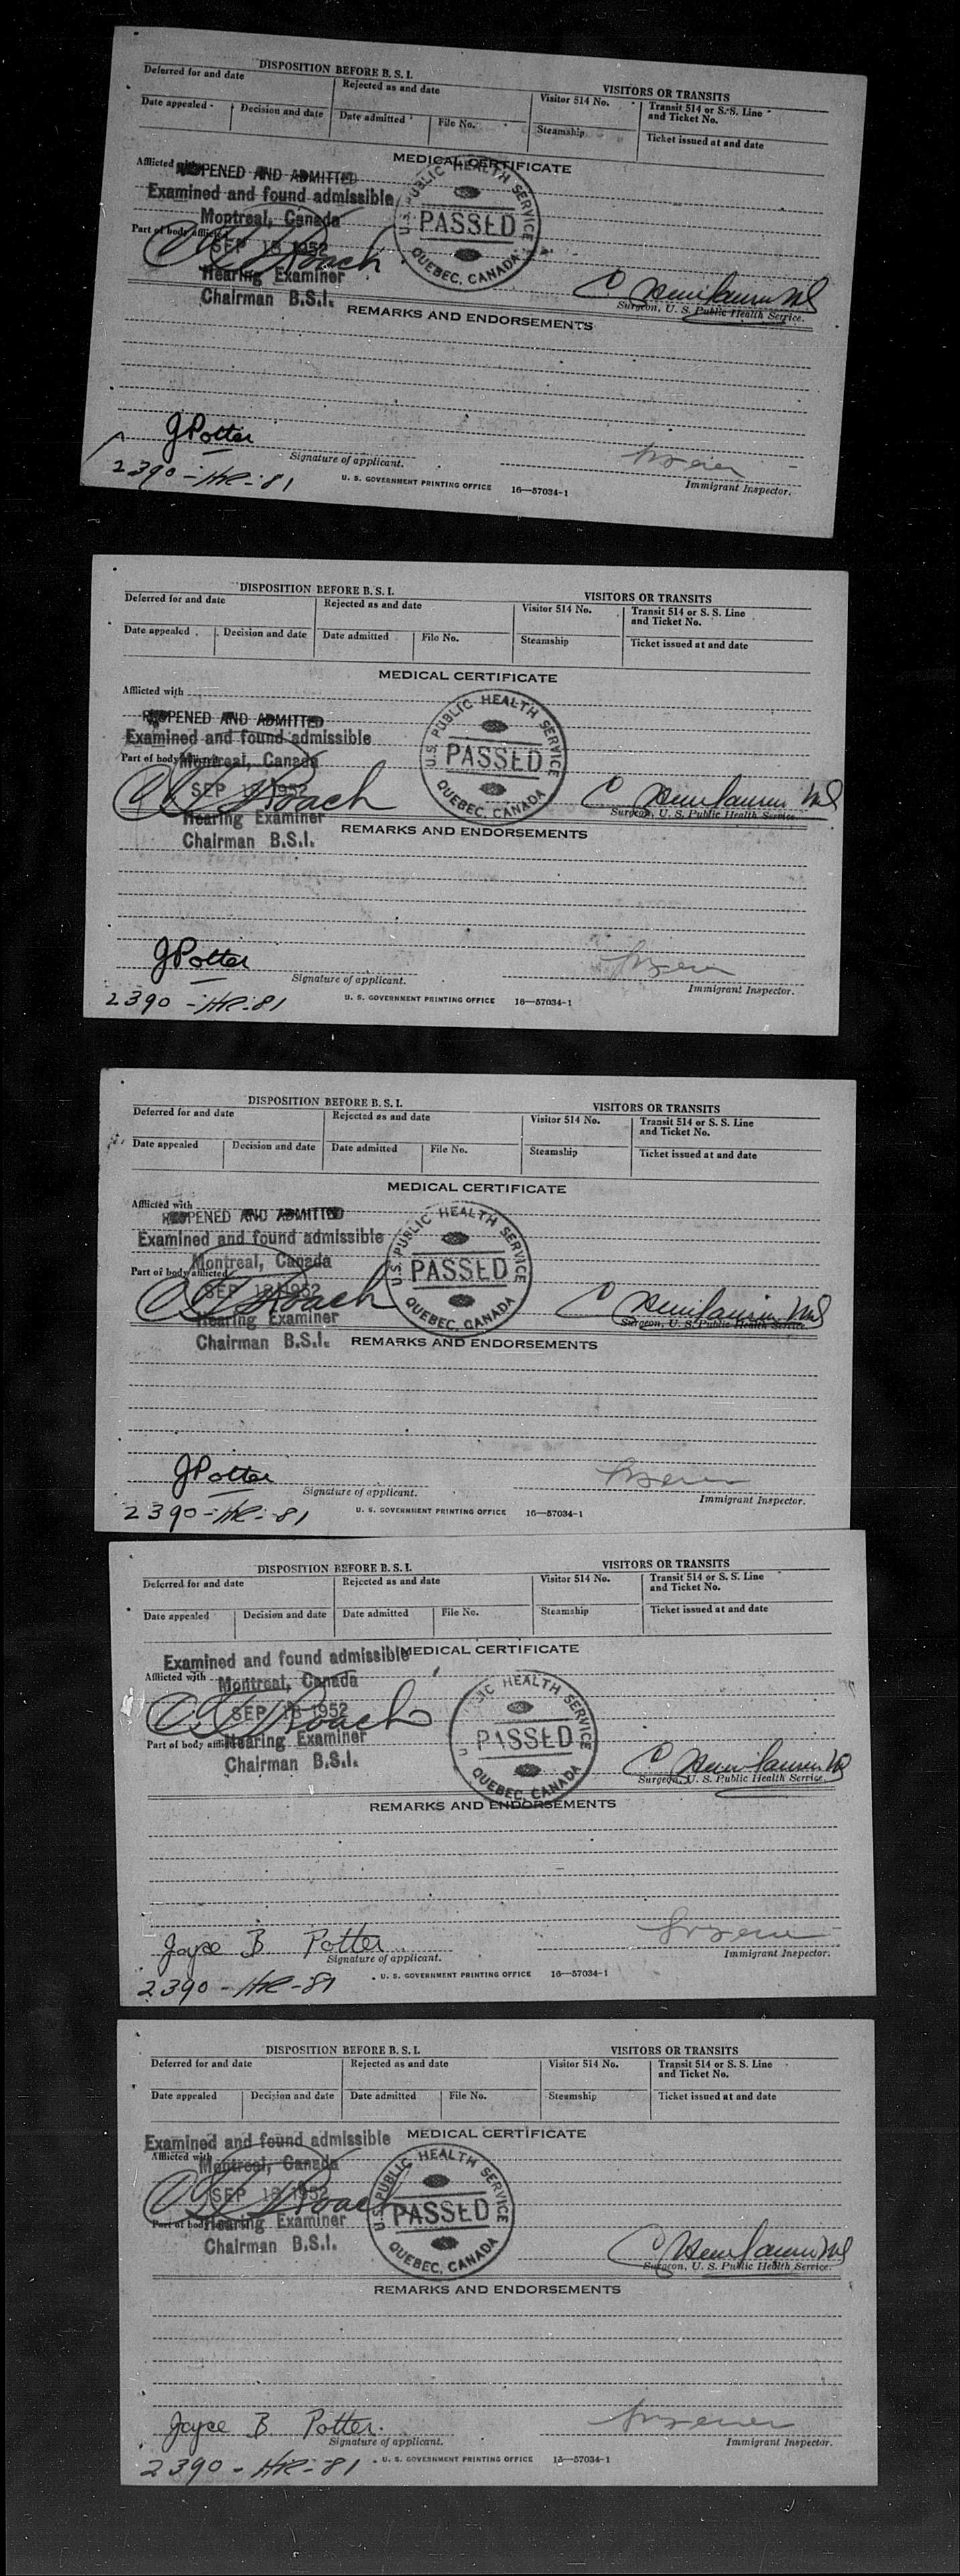 DISPOSITION BEFORE B. S. I.
VISITORS OR TRANSITS
Deferred for and date
Rejected as and date
Visitor 514 No.
Transit 514 or S. S. Line and Ticket No.
Date appealed
Decision and date
Date admitted
File No.
Steamship
Ticket issued at and date
MEDICAL CERTIFICATE
Afflicted
REOPENED AND ADMITTED
Examined and found admissible
Montreal, Canada
Part of body afflicted
SEP 18 1952
Roach
Hearing Examiner
Chairman B.S.I.
U.S. PUBLIC HEALTH SERVICE
PASSED
QUEBEC, CANADA
Surgeon, U. S. Public Health Service.
REMARKS AND ENDORSEMENTS
JPotter
Signature of applicant.
Immigrant Inspector.
2390-HR-81
U. S. GOVERNMENT PRINTING OFFICE 16—57034-1
DISPOSITION BEFORE B. S. I.
VISITORS OR TRANSITS
Deferred for and date
Rejected as and date
Visitor 514 No.
Transit 514 or S. S. Line and Ticket No.
Date appealed
Decision and date
Date admitted
File No.
Steamship
Ticket issued at and date
MEDICAL CERTIFICATE
Afflicted with
REOPENED AND ADMITTED
Examined and found admissible
Part of body
Montreal, Canada
SEP 18 1952
Roach
Hearing Examiner
Chairman B.S.I.
U.S. PUBLIC HEALTH SERVICE
PASSED
QUEBEC, CANADA
Surgeon, U. S. Public Health Service.
REMARKS AND ENDORSEMENTS
JPotter
Signature of applicant.
Immigrant Inspector.
2390-HR-81
U. S. GOVERNMENT PRINTING OFFICE 16—57034-1
DISPOSITION BEFORE B. S. I.
VISITORS OR TRANSITS
Deferred for and date
Rejected as and date
Visitor 514 No.
Transit 514 or S. S. Line and Ticket No.
Date appealed
Decision and date
Date admitted
File No.
Steamship
Ticket issued at and date
MEDICAL CERTIFICATE
Afflicted with
REOPENED AND ADMITTED
Examined and found admissible
Montreal, Canada
Part of body afflicted
SEP 18 1952
Roach
Hearing Examiner
Chairman B.S.I.
U.S. PUBLIC HEALTH SERVICE
PASSED
QUEBEC, CANADA
Surgeon, U. S. Public Health Service.
REMARKS AND ENDORSEMENTS
JPotter
Signature of applicant.
Immigrant Inspector.
2390-HR-81
U. S. GOVERNMENT PRINTING OFFICE 16—57034-1
DISPOSITION BEFORE B. S. I.
VISITORS OR TRANSITS
Deferred for and date
Rejected as and date
Visitor 514 No.
Transit 514 or S. S. Line and Ticket No.
Date appealed
Decision and date
Date admitted
File No.
Steamship
Ticket issued at and date
Examined and found admissible
MEDICAL CERTIFICATE
Afflicted with
Montreal, Canada
SEP 18 1952
Roach
Part of body
Hearing Examiner
Chairman B.S.I.
HEALTH SERVICE
PASSED
QUEBEC, CANADA
Surgeon, U. S. Public Health Service.
REMARKS AND ENDORSEMENTS
Joyce B Potter
Signature of applicant.
Immigrant Inspector.
2390-HR-81
U. S. GOVERNMENT PRINTING OFFICE 16—57034-1
DISPOSITION BEFORE B. S. I.
VISITORS OR TRANSITS
Deferred for and date
Rejected as and date
Visitor 514 No.
Transit 514 or S. S. Line and Ticket No.
Date appealed
Decision and date
Date admitted
File No.
Steamship
Ticket issued at and date
Examined and found admissible
MEDICAL CERTIFICATE
Afflicted with
Montreal, Canada
SEP 18 1952
Roach
Part of body
Hearing Examiner
Chairman B.S.I.
U.S. PUBLIC HEALTH SERVICE
PASSED
QUEBEC, CANADA
Surgeon, U. S. Public Health Service.
REMARKS AND ENDORSEMENTS
Joyce B Potter.
Signature of applicant.
Immigrant Inspector.
2390-HR-81
U. S. GOVERNMENT PRINTING OFFICE 16—57034-1